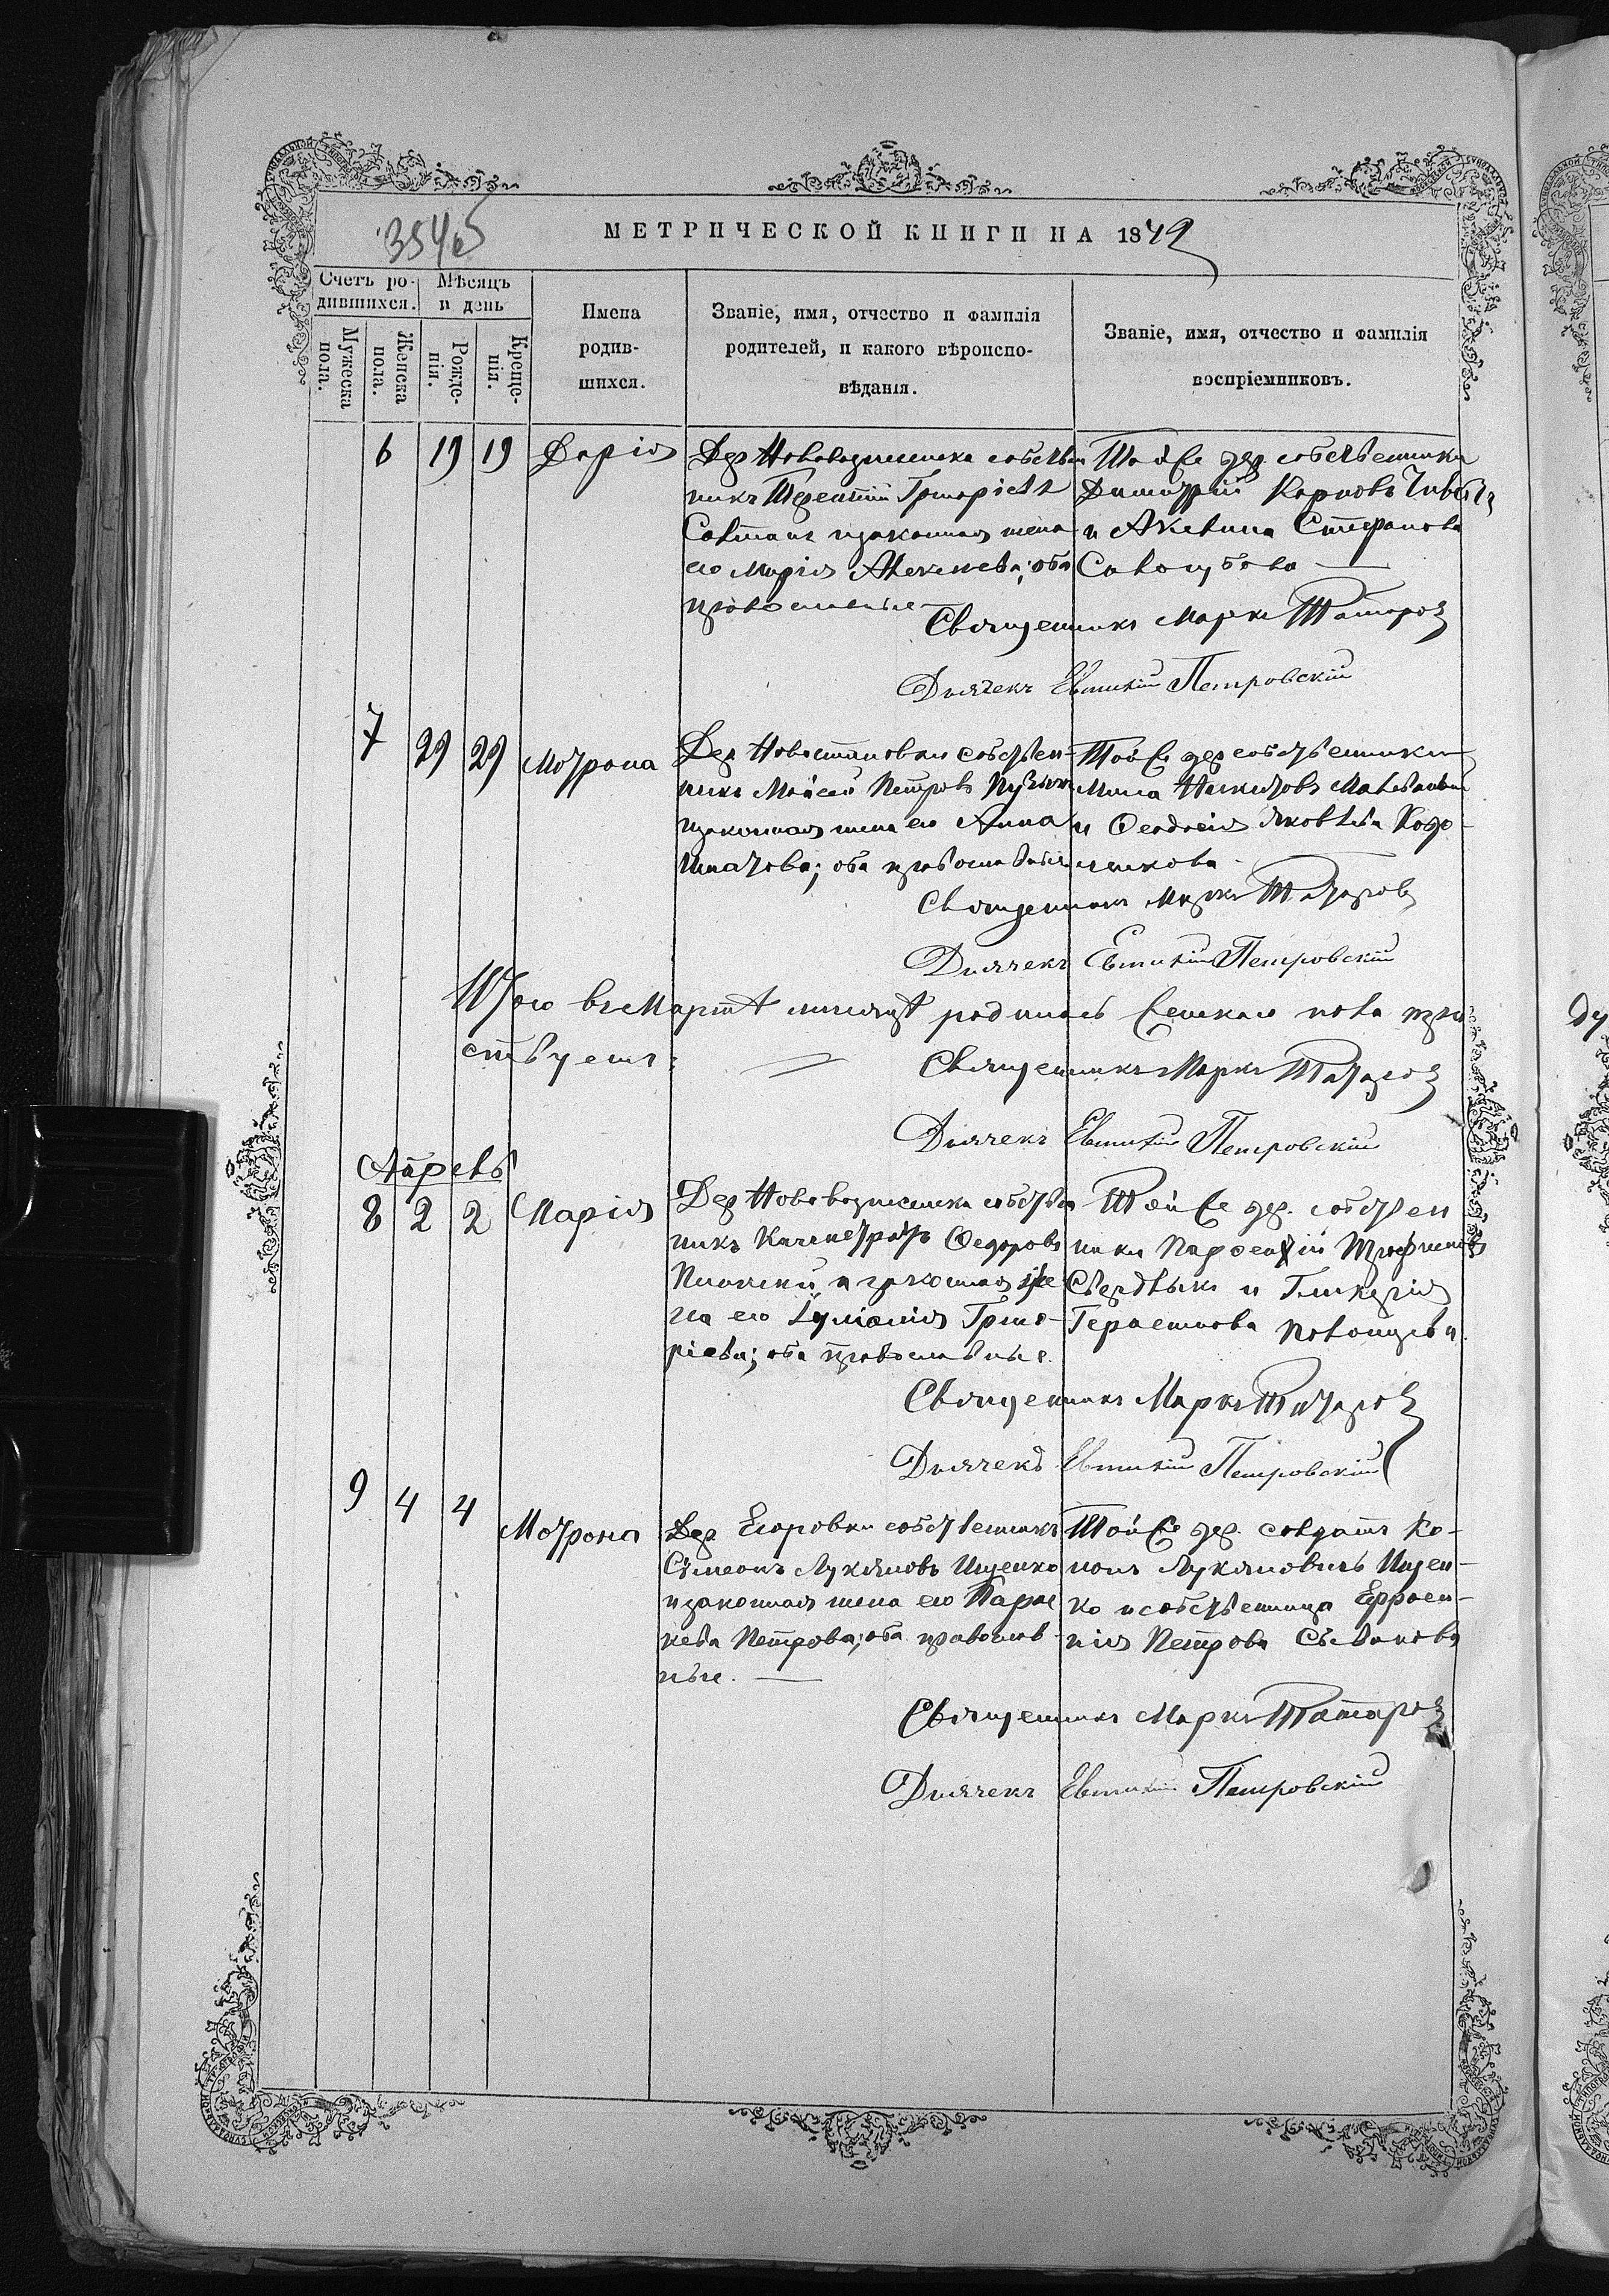 354 об
МЕТРИЧЕСКОЙ КНИГИ НА 1879
Счетъ ро-
дившихся.
Мѣсяцъ
и день
Мужеска
пола.
Женска
пола.
Рожде-
нія.
Креще-
нія.
Имена
родив-
шихся.
Званіе, имя, отчество и фамилія
родителей, и какого вѣроиспо-
вѣданія.
Званіе, имя, отчество и фамилія
воспріемниковъ.
6 19 19 Дарія
Дер Нововознесенска собствен
никъ Терентій Григоріевъ
и законная жена
его Марія Алексѣева; оба
православные
Той же дер собственники
Димитрій Карповъ
и Акилина Стефанова
Священникъ Маркъ Татаровъ
Дьячекъ Евтихій Петровскій
7 29 29 Мотрона
Дер Новостановки собствен-
никъ Моисей Петровъ
и законная жена его Анна
Игнатова; оба православные
Той же дер собственники
Никитовъ
и Феодосія Яковлева
Священникъ Маркъ Татаровъ
Дьячекъ Евтихій Петровскій
Итого въ Мартѣ мѣсяцѣ родилось женскаго пола
Священникъ Маркъ Татаровъ
Дьячекъ Евтихій Петровскій
Апрель
8 2 2 Марія
Дер Нововознесенска собствен
никъ Федоровъ
и законная же
на его Іуліанія Григо-
ріева; оба православные.
Той же дер. собствен
ники Парфентій Трофимовъ
и Гликерія
Герасимова
Священникъ Маркъ Татаровъ
Дьячекъ Евтихій Петровскій
9 4 4
Мотрона
Дер Егоровки собственникъ
Сѵмеонъ Лукіяновъ Ищенко
и законная жена его Парас
кева Петрова; оба православ-
ные.
Той же дер. солдатъ Ко-
нонъ Лукіяновичъ Ищен-
ко и собственница Ефросин-
нія Петрова
Священникъ Маркъ Татаровъ
Дьячекъ Евтихій Петровскій